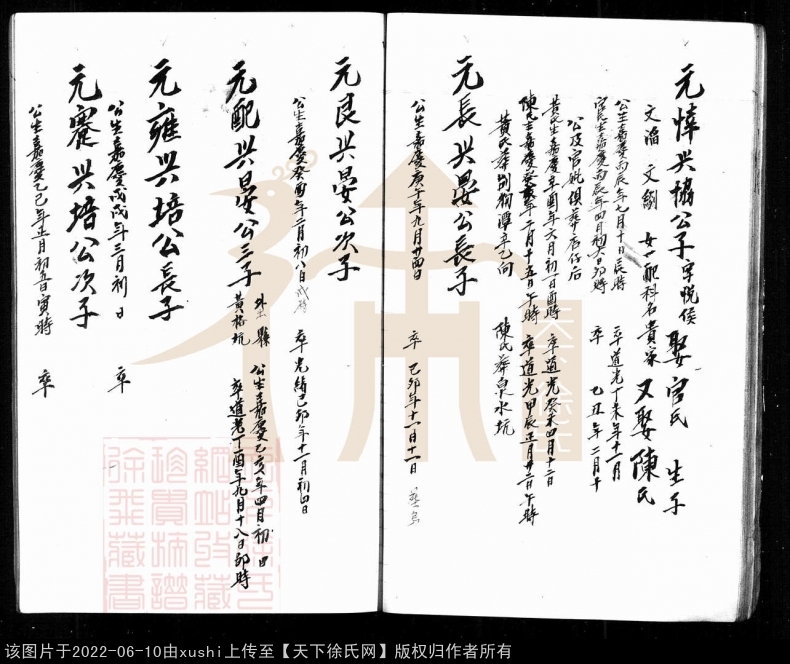 元悼兴協公子字悦侯 娶官氏 生子
文淪 文劎 女一配科名貴家 又娶陳氏
公生嘉慶丙辰年七月十日辰時 卒道光丁未年十一月
官氏生嘉慶丙辰年四月初六日卯時 卒 乙丑年二月十
公及官妣俱葬店仔后
黄氏生嘉慶辛酉年六月初一日酉時 卒道光癸未四月十二日
陳氏生嘉慶癸亥年二月十五日午時 卒道光甲辰正月廿二日午時
黄氏葬 陳氏葬泉水坑
元長兴晏公長子
公生嘉慶庚午年九月廿四日 卒 己卯年十一月十一日
元良兴晏公次子
公生嘉慶癸酉年二月初八日 卒光緒己卯年十一月初四日
元配兴晏公三子 外縣 黄梅坑
公生嘉慶乙亥年四月初 日 卒道光丁酉年九月十八日卯時
元雍兴培公長子
公生嘉慶戊戌年三月初 日 卒
元寔兴培公次子
公生嘉慶乙巳年正月初五日寅時 卒
该图片于2022-06-10由xushi上传至【天下徐氏网】版权归作者所有